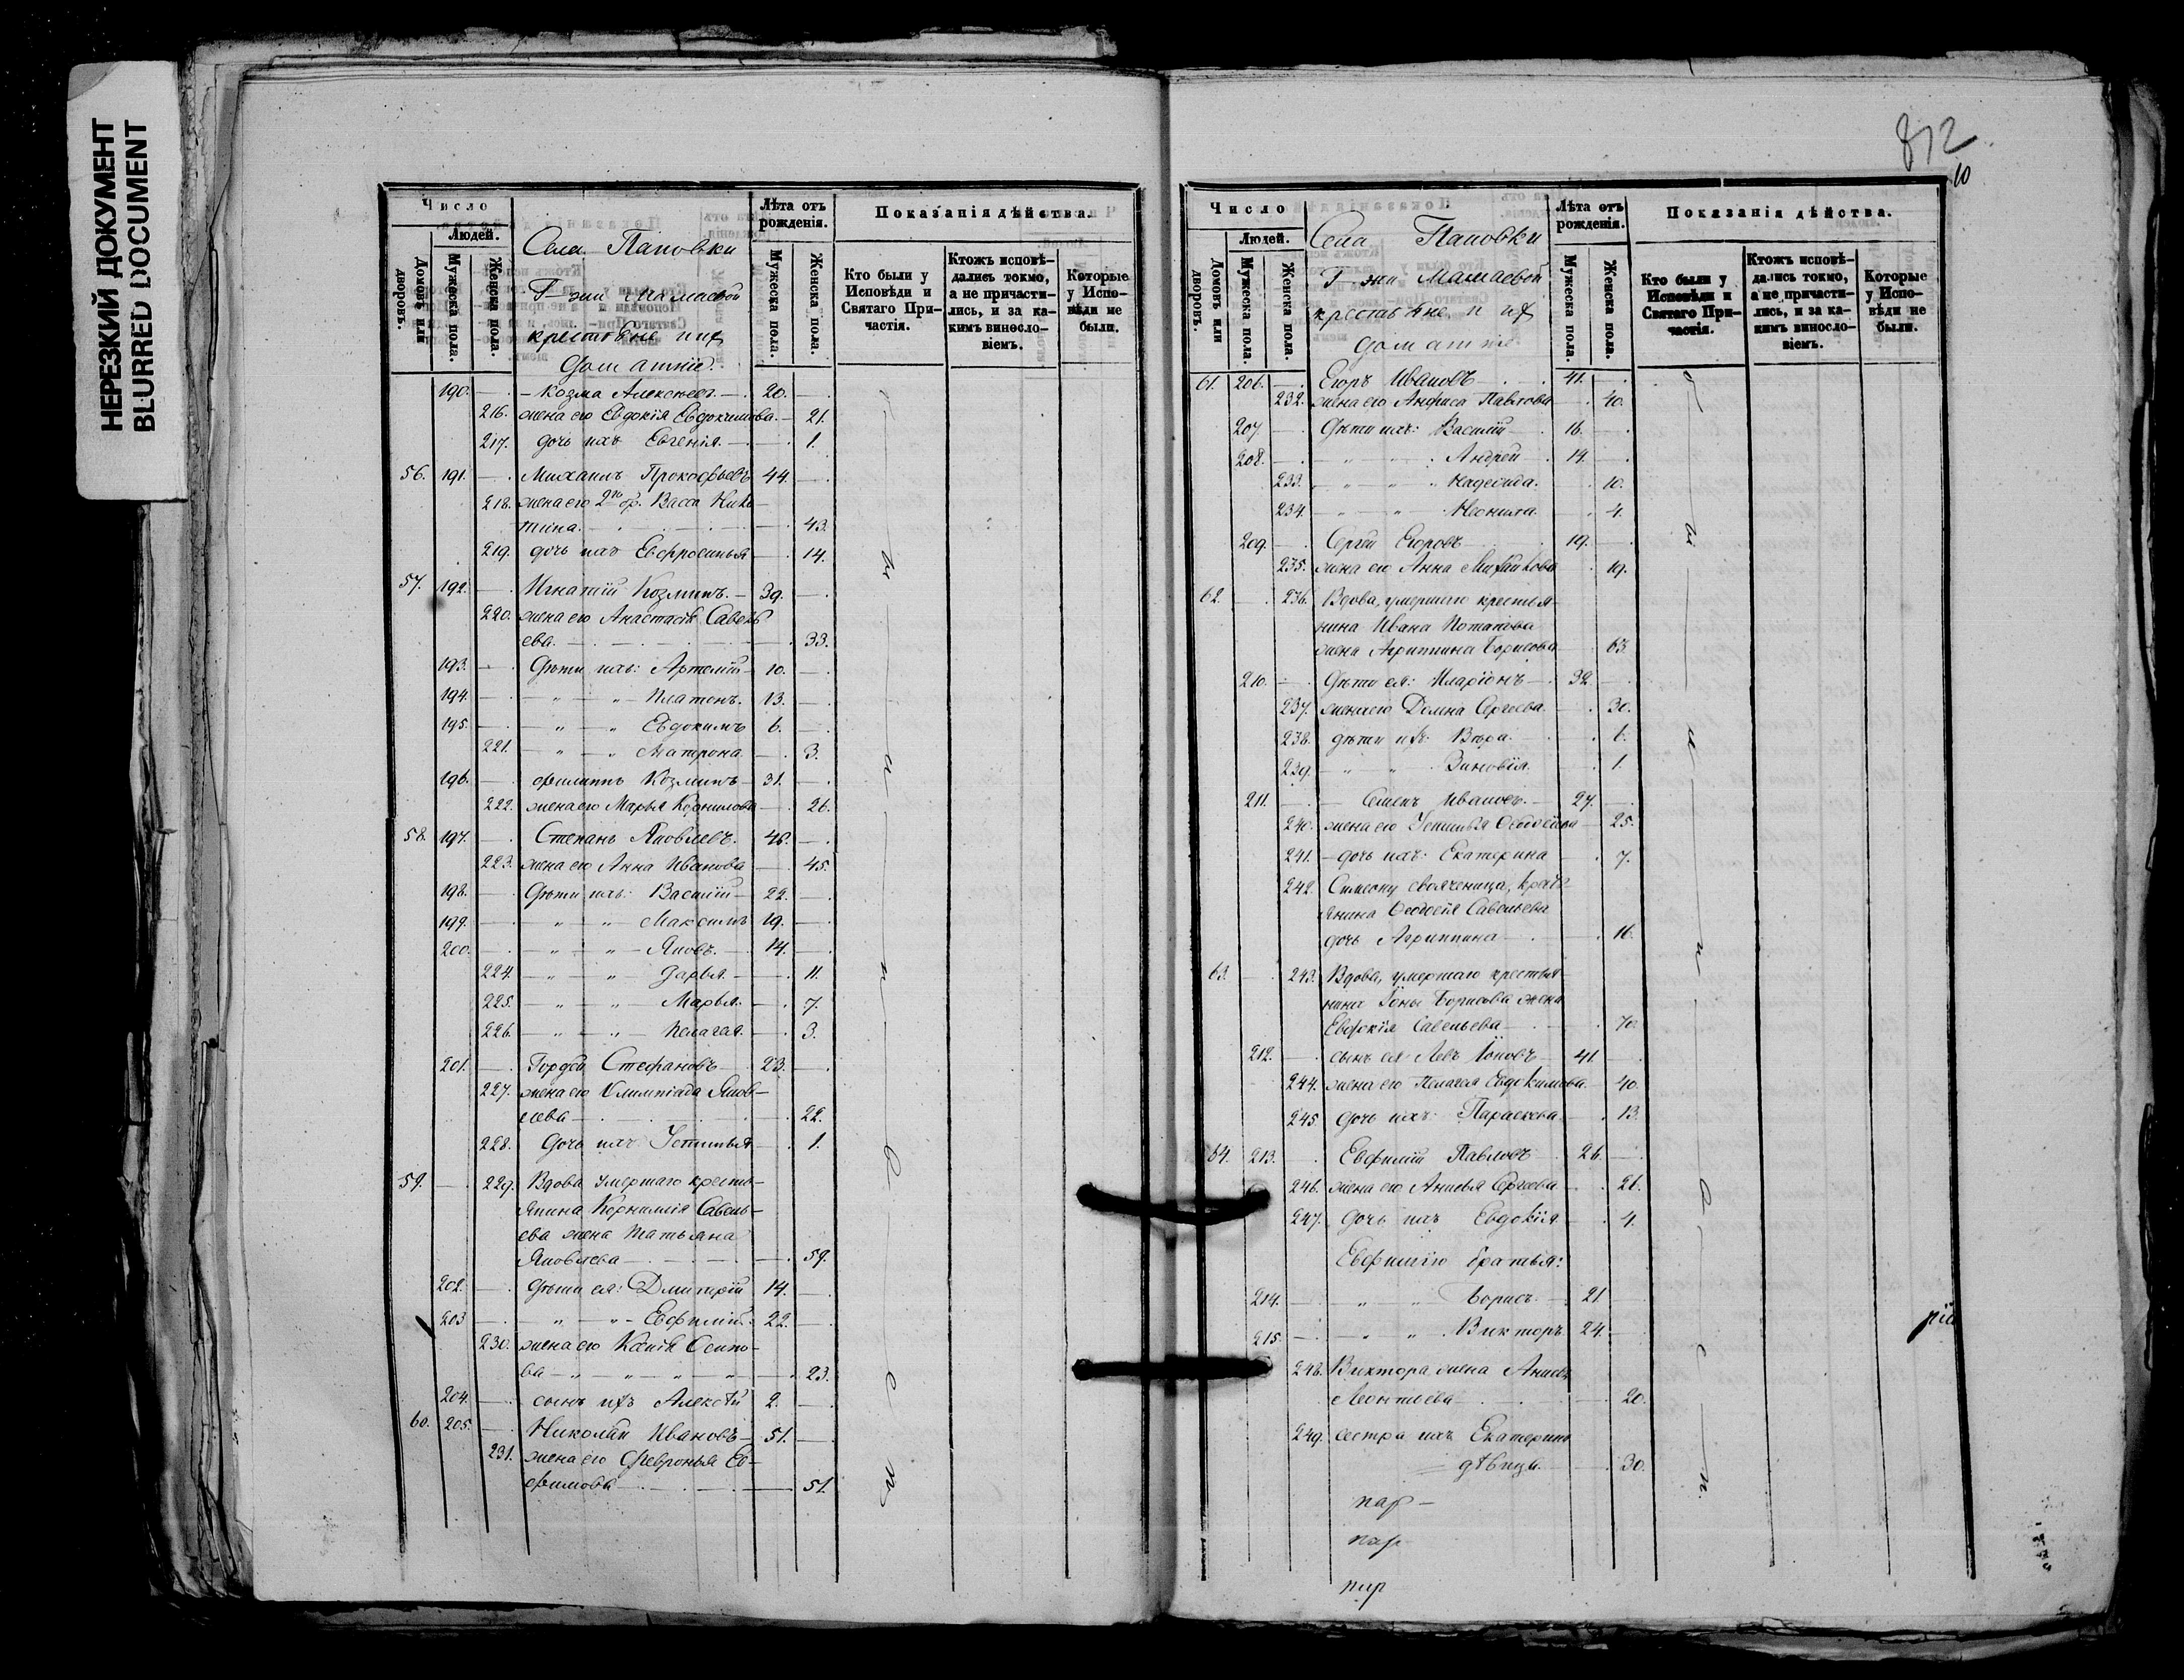 НЕРЕЗКИЙ ДОКУМЕНТ
BLURRED DOCUMENT
Число
Людей.
Домовъ или дворовъ.
Мужеска пола.
Женска пола.
Села Паповки
Г-жи Мамаевой
крестьяне и их
домашніе.
Лѣта отъ рожденія.
Мужеска пола.
Женска пола.
Показанія дѣйства.
Кто были у Исповѣди и Святаго Причастія.
Ктожъ исповѣдались токмо, а не причастились, и за какимъ винословіемъ.
Которые у Исповѣди не были.
190. Козма Алексѣевъ 20.
216. жена его Евдокія Евдокимова 21.
217. дочь ихъ Евгенія 1.
56. 191. Михаилъ Прокофьевъ 44.
218. жена его 2го бр. Васса Ники-
тина 43.
219. дочь ихъ Евфросинья 14.
57. 192. Игнатій Козминъ 39.
220. жена его Анастасія Савель
ева 33.
193. Дѣти ихъ: Артемій 10.
194. " " Платонъ 13.
195. " " Евдокимъ 6.
221. " " Матрона 3.
196. Филиппъ Козминъ 31.
222. жена его Марья Корнилова 26.
58. 197. Степанъ Яковлевъ 46.
223. жена его Анна Иванова 45.
198. Дѣти ихъ: Василій 22.
199. " " Максимъ 19.
200. " " Яковъ 14.
224. " " Дарья 11.
225. " " Марья 7.
226. " " Пелагая 3.
201. Гордѣй Стефановъ 23.
227. жена его Олимпіада Яков-
лева 22.
228. Дочь ихъ Устинья 1.
59. 229. Вдова умершаго кресть-
янина Корнилія Савель-
ева жена Татьяна
Яковлева 59.
202. Дѣти ея: Дмитрій 14.
203 " " Евфимій 22.
230. жена его Ксенія Осипо-
ва " " " " 23.
204. сынъ ихъ Алексѣй 2.
60. 205. Николай Ивановъ 51.
231. жена его Февронья Ев-
фимова 51.
812
10
Число
Людей.
Домовъ или дворовъ.
Мужеска пола.
Женска пола.
Села Паповки
Г-жи Мамаевой
крестьяне и их
домашніе
Лѣта отъ рожденія.
Мужеска пола.
Женска пола.
Показанія дѣйства.
Кто были у Исповѣди и Святаго Причастія.
Ктожъ исповѣдались токмо, а не причастились, и за какимъ винословіемъ.
Которые у Исповѣди не были.
61. 206. Егоръ Ивановъ 41.
232. жена его Анфиса Павлова 40.
207 Дѣти ихъ: Василій 16.
208. " " Андрей 14.
233. " " Надежда 10.
234. " " Неонила 4.
209. Сергѣй Егоровъ 19.
235. жена его Анна Михайлова 19.
62. 236. Вдова, умершаго крестья-
нина Ивана Потапова
жена Агриппина Борисова 63.
210. Дѣти ея: Иларіонъ 32.
237. жена его Домна Сергѣева 30.
238. дѣти ихъ: Вѣра 6.
239. " " Зиновія 1.
211. Семенъ Ивановъ 27.
240. жена его Устинья 25.
241. дочь ихъ: Екатерина 7.
242. Симеону свояченица, крест
янина Феодосія Савельева
дочь Агриппина 16.
63. 243. Вдова, умершаго крестья-
нина Іоны Борисова жена
Евдокія Савельева 70.
212. сынъ ея Левъ Іоновъ 41.
244. жена его Пелагея Евдокимова 40.
245. дочь ихъ: Параскева 13.
64. 213. Евфимій Павловъ 26.
246. жена его Анисья Сергѣева 26.
247. дочь ихъ Евдокія 4.
Евфимію братья:
214. " " Борисъ 21
215. " " Викторъ 24.
248. Виктора жена Анисья
Леонтьева 20.
249. сестра ихъ Екатерина
дѣвица 30.